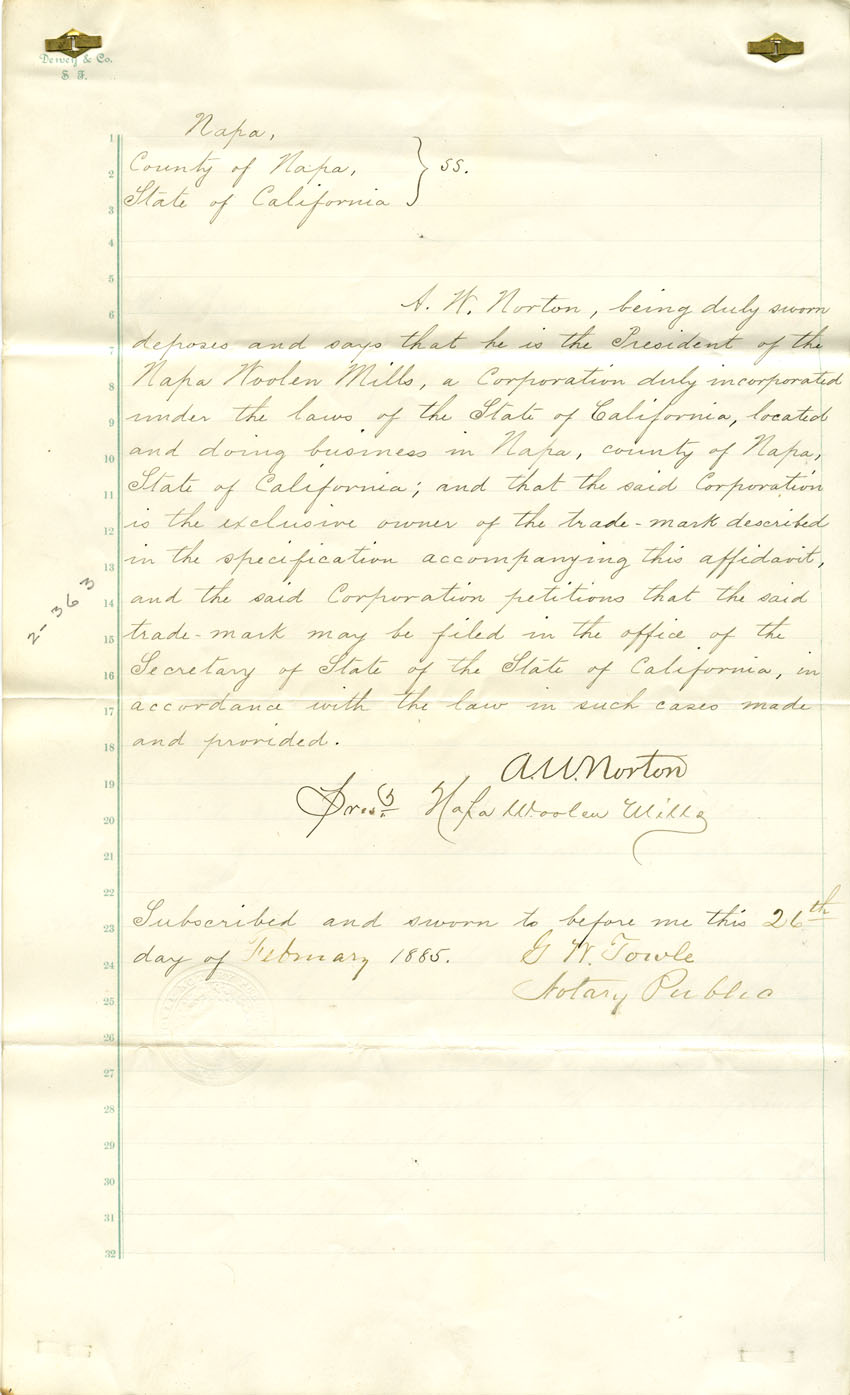 Dewey & Co.
S. F.
Napa,
County of Napa, } ss.
State of California
A. W. Norton, being duly sworn
deposes and says that he is the President of the
Napa Woolen Mills, a Corporation duly incorporated
under the laws of the State of California, located
and doing business in Napa, county of Napa,
State of California; and that the said Corporation
is the exclusive owner of the trade-mark described
in the specification accompanying this affidavit,
and the said Corporation petitions that the said
trade-mark may be filed in the office of the
Secretary of State of the State of California, in
accordance with the law in such cases made
and provided.
A. W. Norton
Prest Napa Woolen Mills
Subscribed and sworn to before me this 26th
day of February 1885. G W. Towle
Notary Public
2-363
1
2
3
4
5
6
7
8
9
10
11
12
13
14
15
16
17
18
19
20
21
22
23
24
25
26
27
28
29
30
31
32